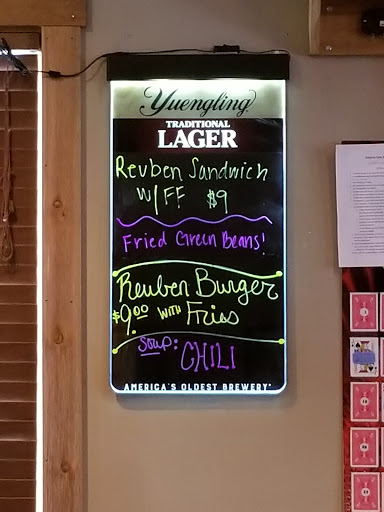 Yuengling
TRADITIONAL
LAGER
Reuben Sandwich
W/FF $9
Fried Green Beans!
Reuben Burger
$9.00 WITH Fries
Soup: CHILI
AMERICA'S OLDEST BREWERY